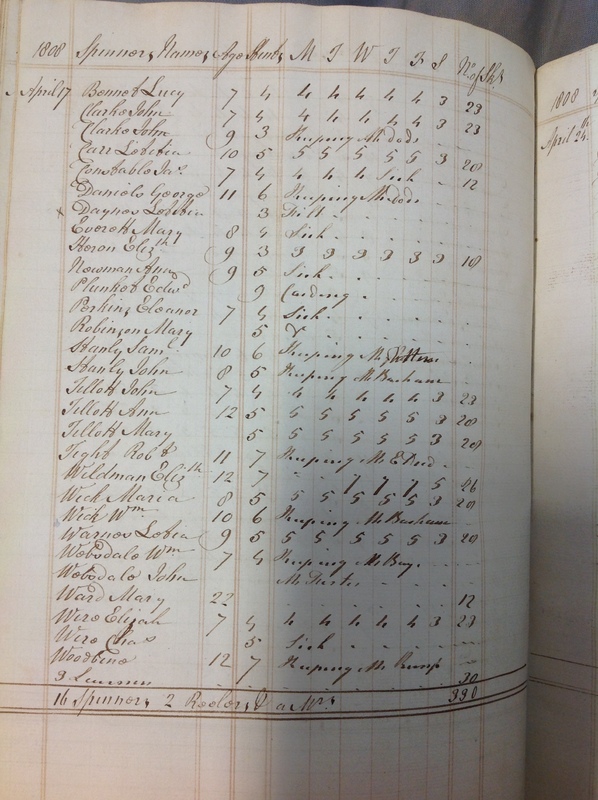 1808 Spinners Names Age Stint M T W T F S No of Sk
April 17 Bennet Lucy 7 4 4 4 4 4 4 3 23
Clarke John 7 4 4 4 4 4 4 3 23
Clarke John 9 3 Keeping
Carr Letitia 10 5 5 5 5 5 5 3 28
Constable Jas 7 4 4 4 4 Sick - 12
Daniels George 11 6 Keeping
x Daynes Letitia 3 Ill
Everett Mary 8 4 Sick
Heron Elizth 9 3 3 3 3 3 3 3 18
Newman Ann 9 5 Sick
Plunket Edwd 9 Carding
Perkins Eleanor 7 4 Sick
Robinson Mary 5 Do
Hanly Saml 10 6 Keeping Mr
Hanly John 8 5 Keeping Mr Basham
Tillott John 7 4 4 4 4 4 4 3 23
Tillott Ann 12 5 5 5 5 5 5 3 28
Tillott Mary 5 5 5 5 5 5 3 28
Tight Robt 11 7 Keeping Mr E
Wildman Elizth 12 7 - - 7 7 7 5 26
Wick Maria 8 5 5 5 5 5 5 3 28
Wick Wm 10 6 Keeping Mr Basham
Warnes Letia 9 5 5 5 5 5 5 3 28
Webdale Wm 7 4 Keeping Mr Bay
Webdale John Mr
Ward Mary 22 12
Wire Elijah 7 4 4 4 4 4 4 3 23
Wire Chas 5 Sick
Woodbine 12 7 Keeping Mr Crump
3 30
16 Spinners 2 Reelers & a Mrs 330
1808
April 24th